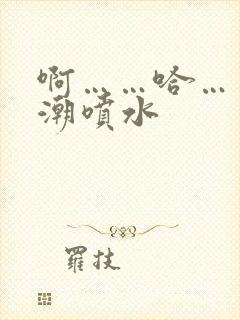 啊……哈…
潮噴水
羅技